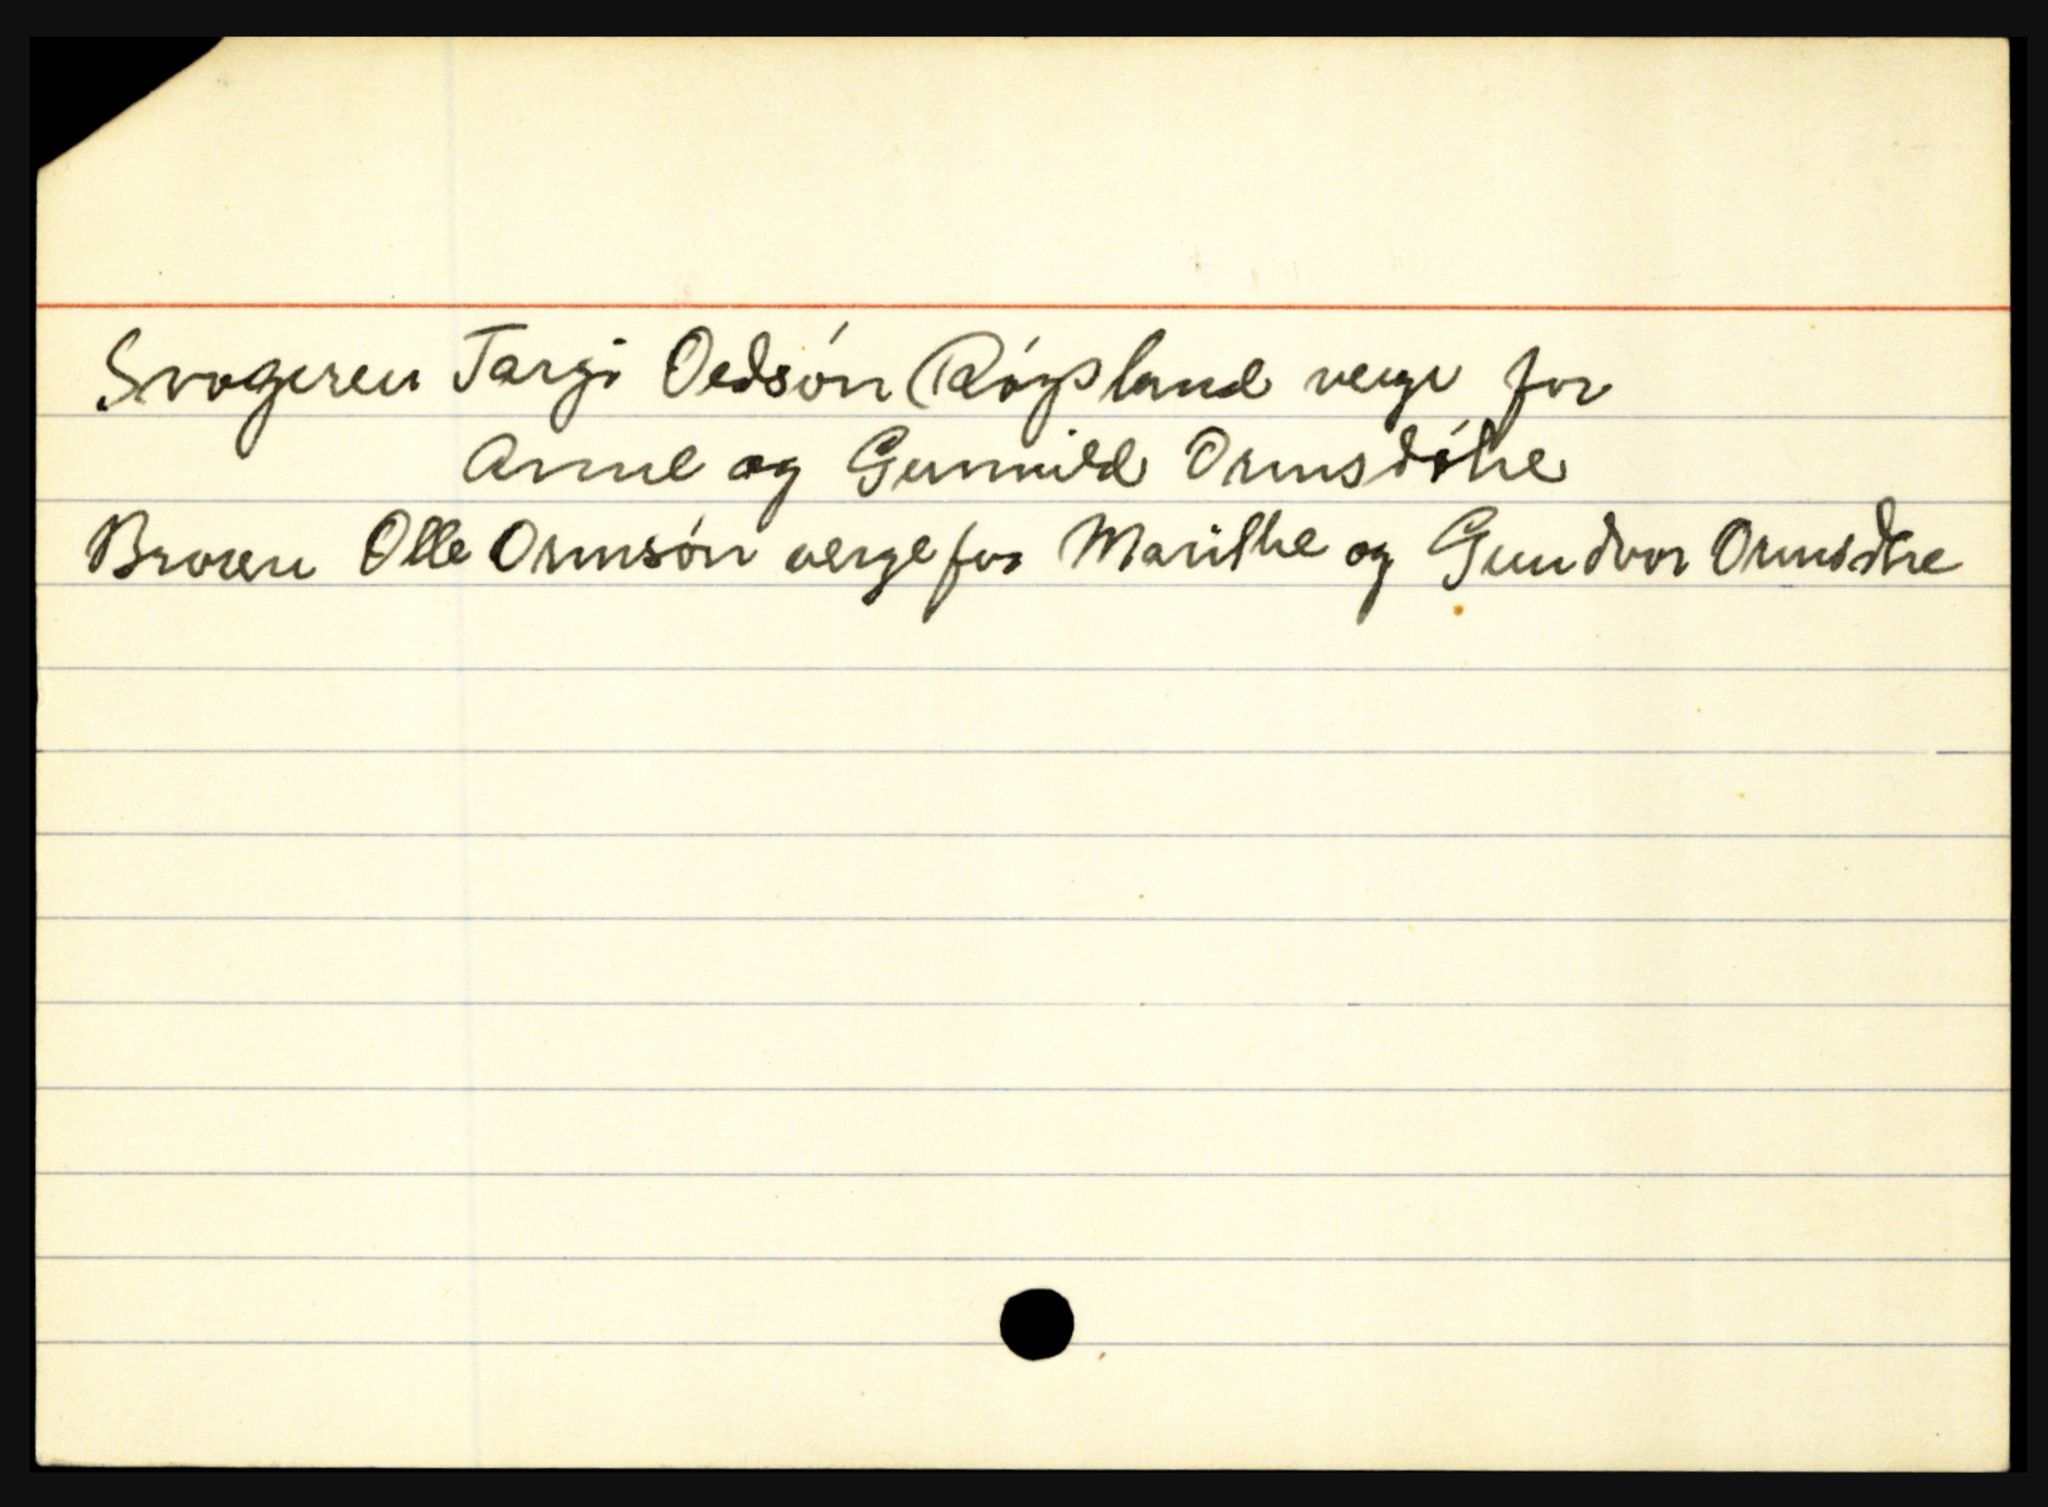 Svogeren Targi Oedsón Róysland verge for
Anne og Gunnild Ormsdótre
Broren Olle Ormsón verge for Marithe og Gundvor Ormsdtre